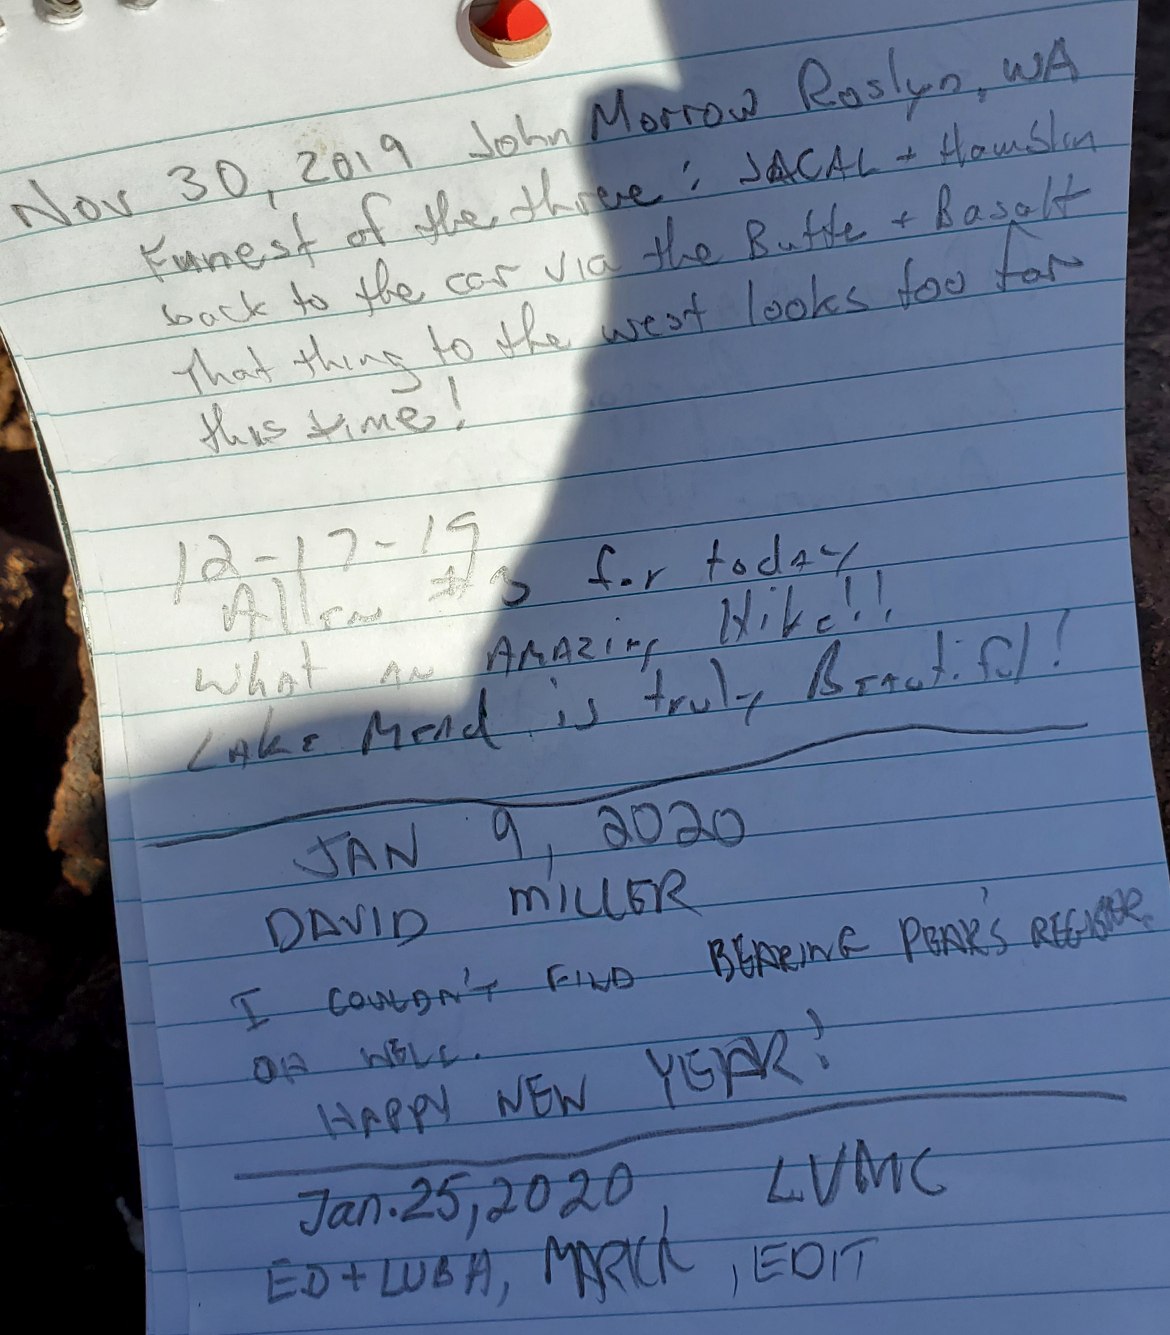 Nov 30, 2019 John Morrow Roslyn, WA
Funest of the three; JACAL + Hamblin
back to the car via the Butte + Basalt
That thing to the west looks too far
this time!
12-17-19
Allen #3 for today
What an AMAZING Hike!!
LAKE MEAD is truly BEAUTIFUL!
JAN 9, 2020
DAVID MILLER
I COULDN'T FIND BEARING PEAK'S REGISTER.
OH WELL.
HAPPY NEW YEAR!
Jan. 25, 2020, LVMC
ED + LUBA, , EDIT